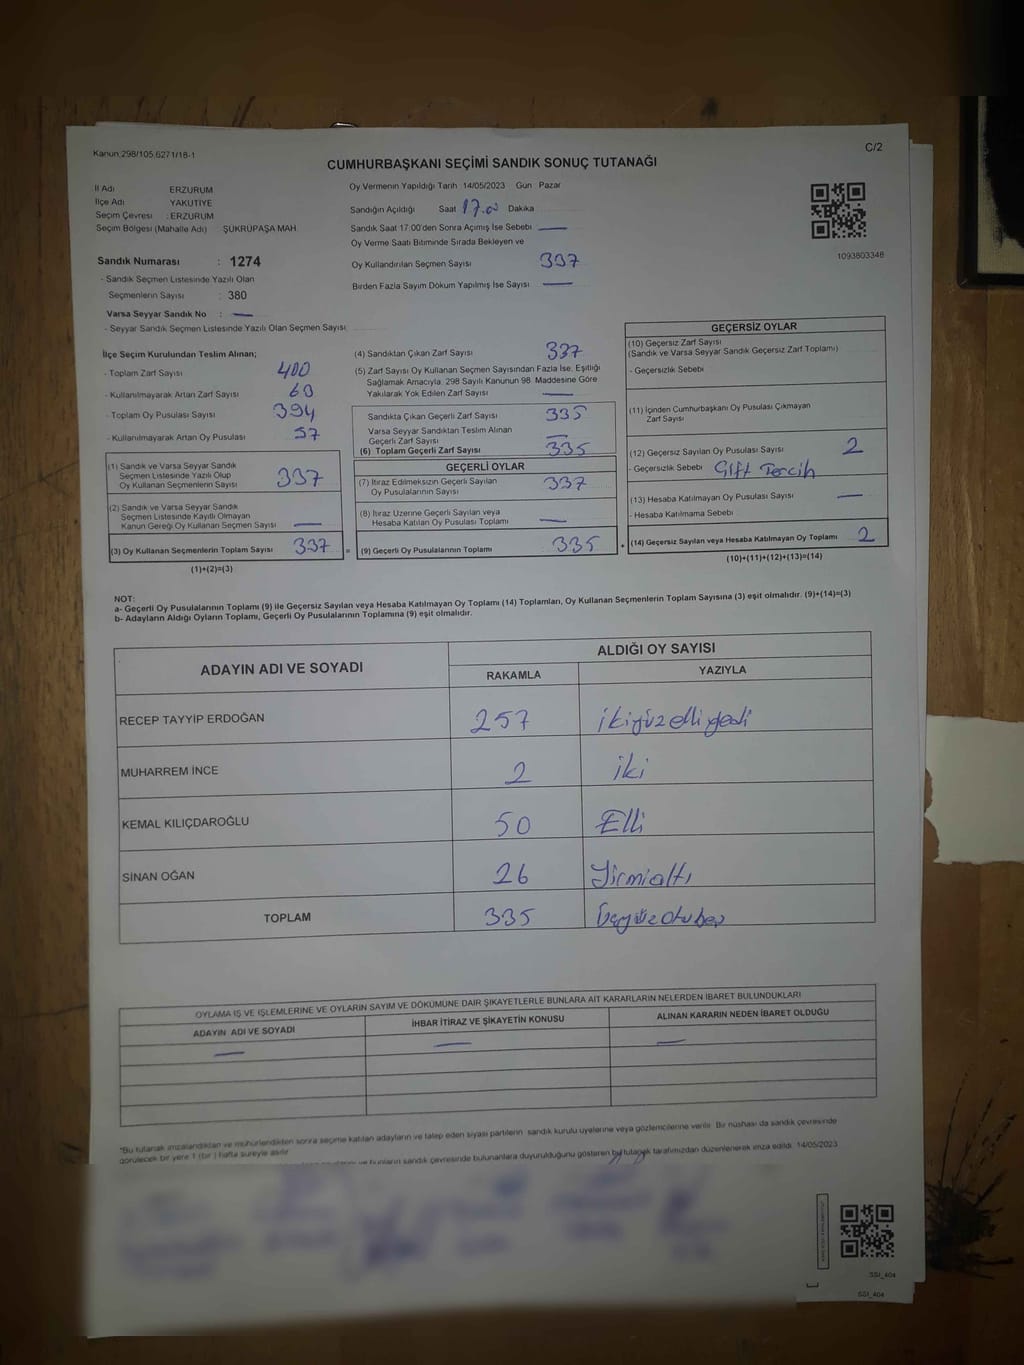 Kanun,298/105,6271/18-1
C/2
CUMHURBAŞKANI SEÇİMİ SANDIK SONUÇ TUTANAĞI
İl Adı ERZURUM
İlçe Adı YAKUTİYE
Seçim Çevresi : ERZURUM
Seçim Bölgesi (Mahalle Adı) ŞUKRÜPAŞA MAH.
Sandık Numarası : 1274
- Sandık Seçmen Listesinde Yazılı Olan
Seçmenlerin Sayısı : 380
Varsa Seyyar Sandık No : —
- Seyyar Sandık Seçmen Listesinde Yazılı Olan Seçmen Sayısı:
Oy Vermenin Yapıldığı Tarih 14/05/2023 Gün Pazar
Sandığın Açıldığı Saat 17.00 Dakika
Sandık Saat 17:00'den Sonra Açımış İse Sebebi —
Oy Verme Saati Bitiminde Sırada Bekleyen ve
Oy Kullandırılan Seçmen Sayısı 337
Birden Fazla Sayım Döküm Yapılmış İse Sayısı —
1093803348
İlçe Seçim Kurulundan Teslim Alınan;
- Toplam Zarf Sayısı 400
- Kullanılmayarak Artan Zarf Sayısı 63
- Toplam Oy Pusulası Sayısı 394
- Kullanılmayarak Artan Oy Pusulası 57
(1) Sandık ve Varsa Seyyar Sandık
Seçmen Listesinde Yazılı Olup
Oy Kullanan Seçmenlerin Sayısı 337
(2) Sandık ve Varsa Seyyar Sandık
Seçmen Listesinde Kayıtlı Olmayan
Kanun Gereği Oy Kullanan Seçmen Sayısı —
(3) Oy Kullanan Seçmenlerin Toplam Sayısı 337 =
(1)+(2)=(3)
(4) Sandıktan Çıkan Zarf Sayısı 337
(5) Zarf Sayısı Oy Kullanan Seçmen Sayısından Fazla İse, Eşitliği
Sağlamak Amacıyla, 298 Sayılı Kanunun 98. Maddesine Göre
Yakılarak Yok Edilen Zarf Sayısı —
Sandıkta Çıkan Geçerli Zarf Sayısı 335
Varsa Seyyar Sandıktan Teslim Alınan
Geçerli Zarf Sayısı —
(6) Toplam Geçerli Zarf Sayısı 335
GEÇERLİ OYLAR
(7) İtiraz Edilmeksizin Geçerli Sayılan
Oy Pusulalarının Sayısı 337
(8) İtiraz Üzerine Geçerli Sayılan veya
Hesaba Katılan Oy Pusulası Toplamı —
(9) Geçerli Oy Pusulalarının Toplamı 335 +
GEÇERSİZ OYLAR
(10) Geçersiz Zarf Sayısı
(Sandık ve Varsa Seyyar Sandık Geçersiz Zarf Toplamı)
- Geçersizlik Sebebi
(11) İçinden Cumhurbaşkanı Oy Pusulası Çıkmayan
Zarf Sayısı
(12) Geçersiz Sayılan Oy Pusulası Sayısı 2
- Geçersizlik Sebebi Çift Tercih
(13) Hesaba Katılmayan Oy Pusulası Sayısı —
- Hesaba Katılmama Sebebi
(14) Geçersiz Sayılan veya Hesaba Katılmayan Oy Toplamı 2
(10)+(11)+(12)+(13)=(14)
NOT:
a- Geçerli Oy Pusulalarının Toplamı (9) ile Geçersiz Sayılan veya Hesaba Katılmayan Oy Toplamı (14) Toplamları, Oy Kullanan Seçmenlerin Toplam Sayısına (3) eşit olmalıdır. (9)+(14)=(3)
b- Adayların Aldığı Oyların Toplamı, Geçerli Oy Pusulalarının Toplamına (9) eşit olmalıdır.
ADAYIN ADI VE SOYADI
ALDIĞI OY SAYISI
RAKAMLA YAZIYLA
RECEP TAYYİP ERDOĞAN 257 ikiyüzelliyedi
MUHARREM İNCE 2 iki
KEMAL KILIÇDAROĞLU 50 Elli
SİNAN OĞAN 26 Yirmialtı
TOPLAM 335 Üçyüzotubeş
OYLAMA İŞ VE İŞLEMLERİNE VE OYLARIN SAYIM VE DÖKÜMÜNE DAİR ŞİKAYETLERLE BUNLARA AİT KARARLARIN NELERDEN İBARET BULUNDUKLARI
ADAYIN ADI VE SOYADI İHBAR İTİRAZ VE ŞİKAYETİN KONUSU ALINAN KARARIN NEDEN İBARET OLDUĞU
— — —
*Bu tutanak imzalandıktan ve mühürlendikten sonra seçime katılan adayların ve talep eden siyasi partilerin sandık kurulu üyelerine veya gözlemcilerine verilir. Bir nüshası da sandık çevresinde
görülecek bir yere 1 (bir) hafta süreyle asılır.
bunların sandık çevresinde bulunanlara duyurulduğunu gösteren bu tutanak tarafımızdan düzenlenerek imza edildi. 14/05/2023
SSI_404
SSI_404